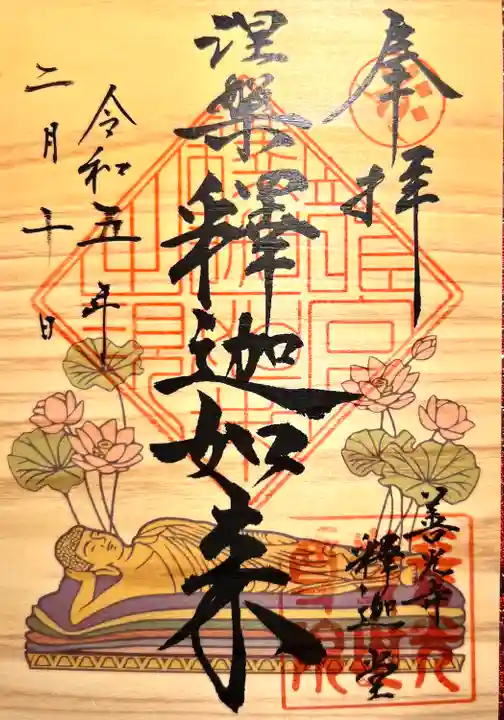 奉拝
涅槃釋迦如来
善光寺
釋迦堂
令和五年
二月十日